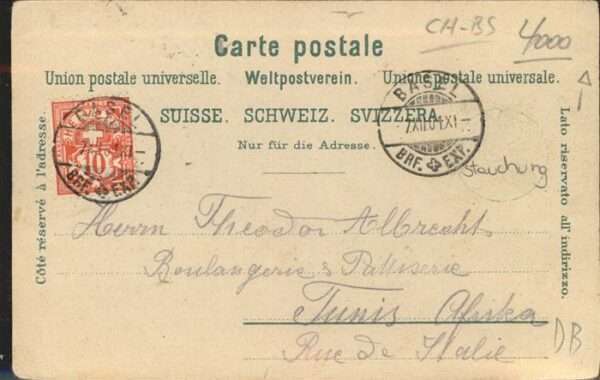 CH-BS 4000
Carte postale
Union postale universelle. Weltpostverein. Unione postale universale.
SUISSE. SCHWEIZ. SVIZZERA.
Nur für die Adresse.
Côté réservé à l'adresse.
Lato riservato all' indirizzo.
BASEL
10
BRF. EXP.
BASEL
7.XII.04.XI
BRF. EXP.
Stauchung
Herrn Theodor Albrecht
Boulangerie & Pâttiserie
Tunis Afrika
Rue de Italie
DB